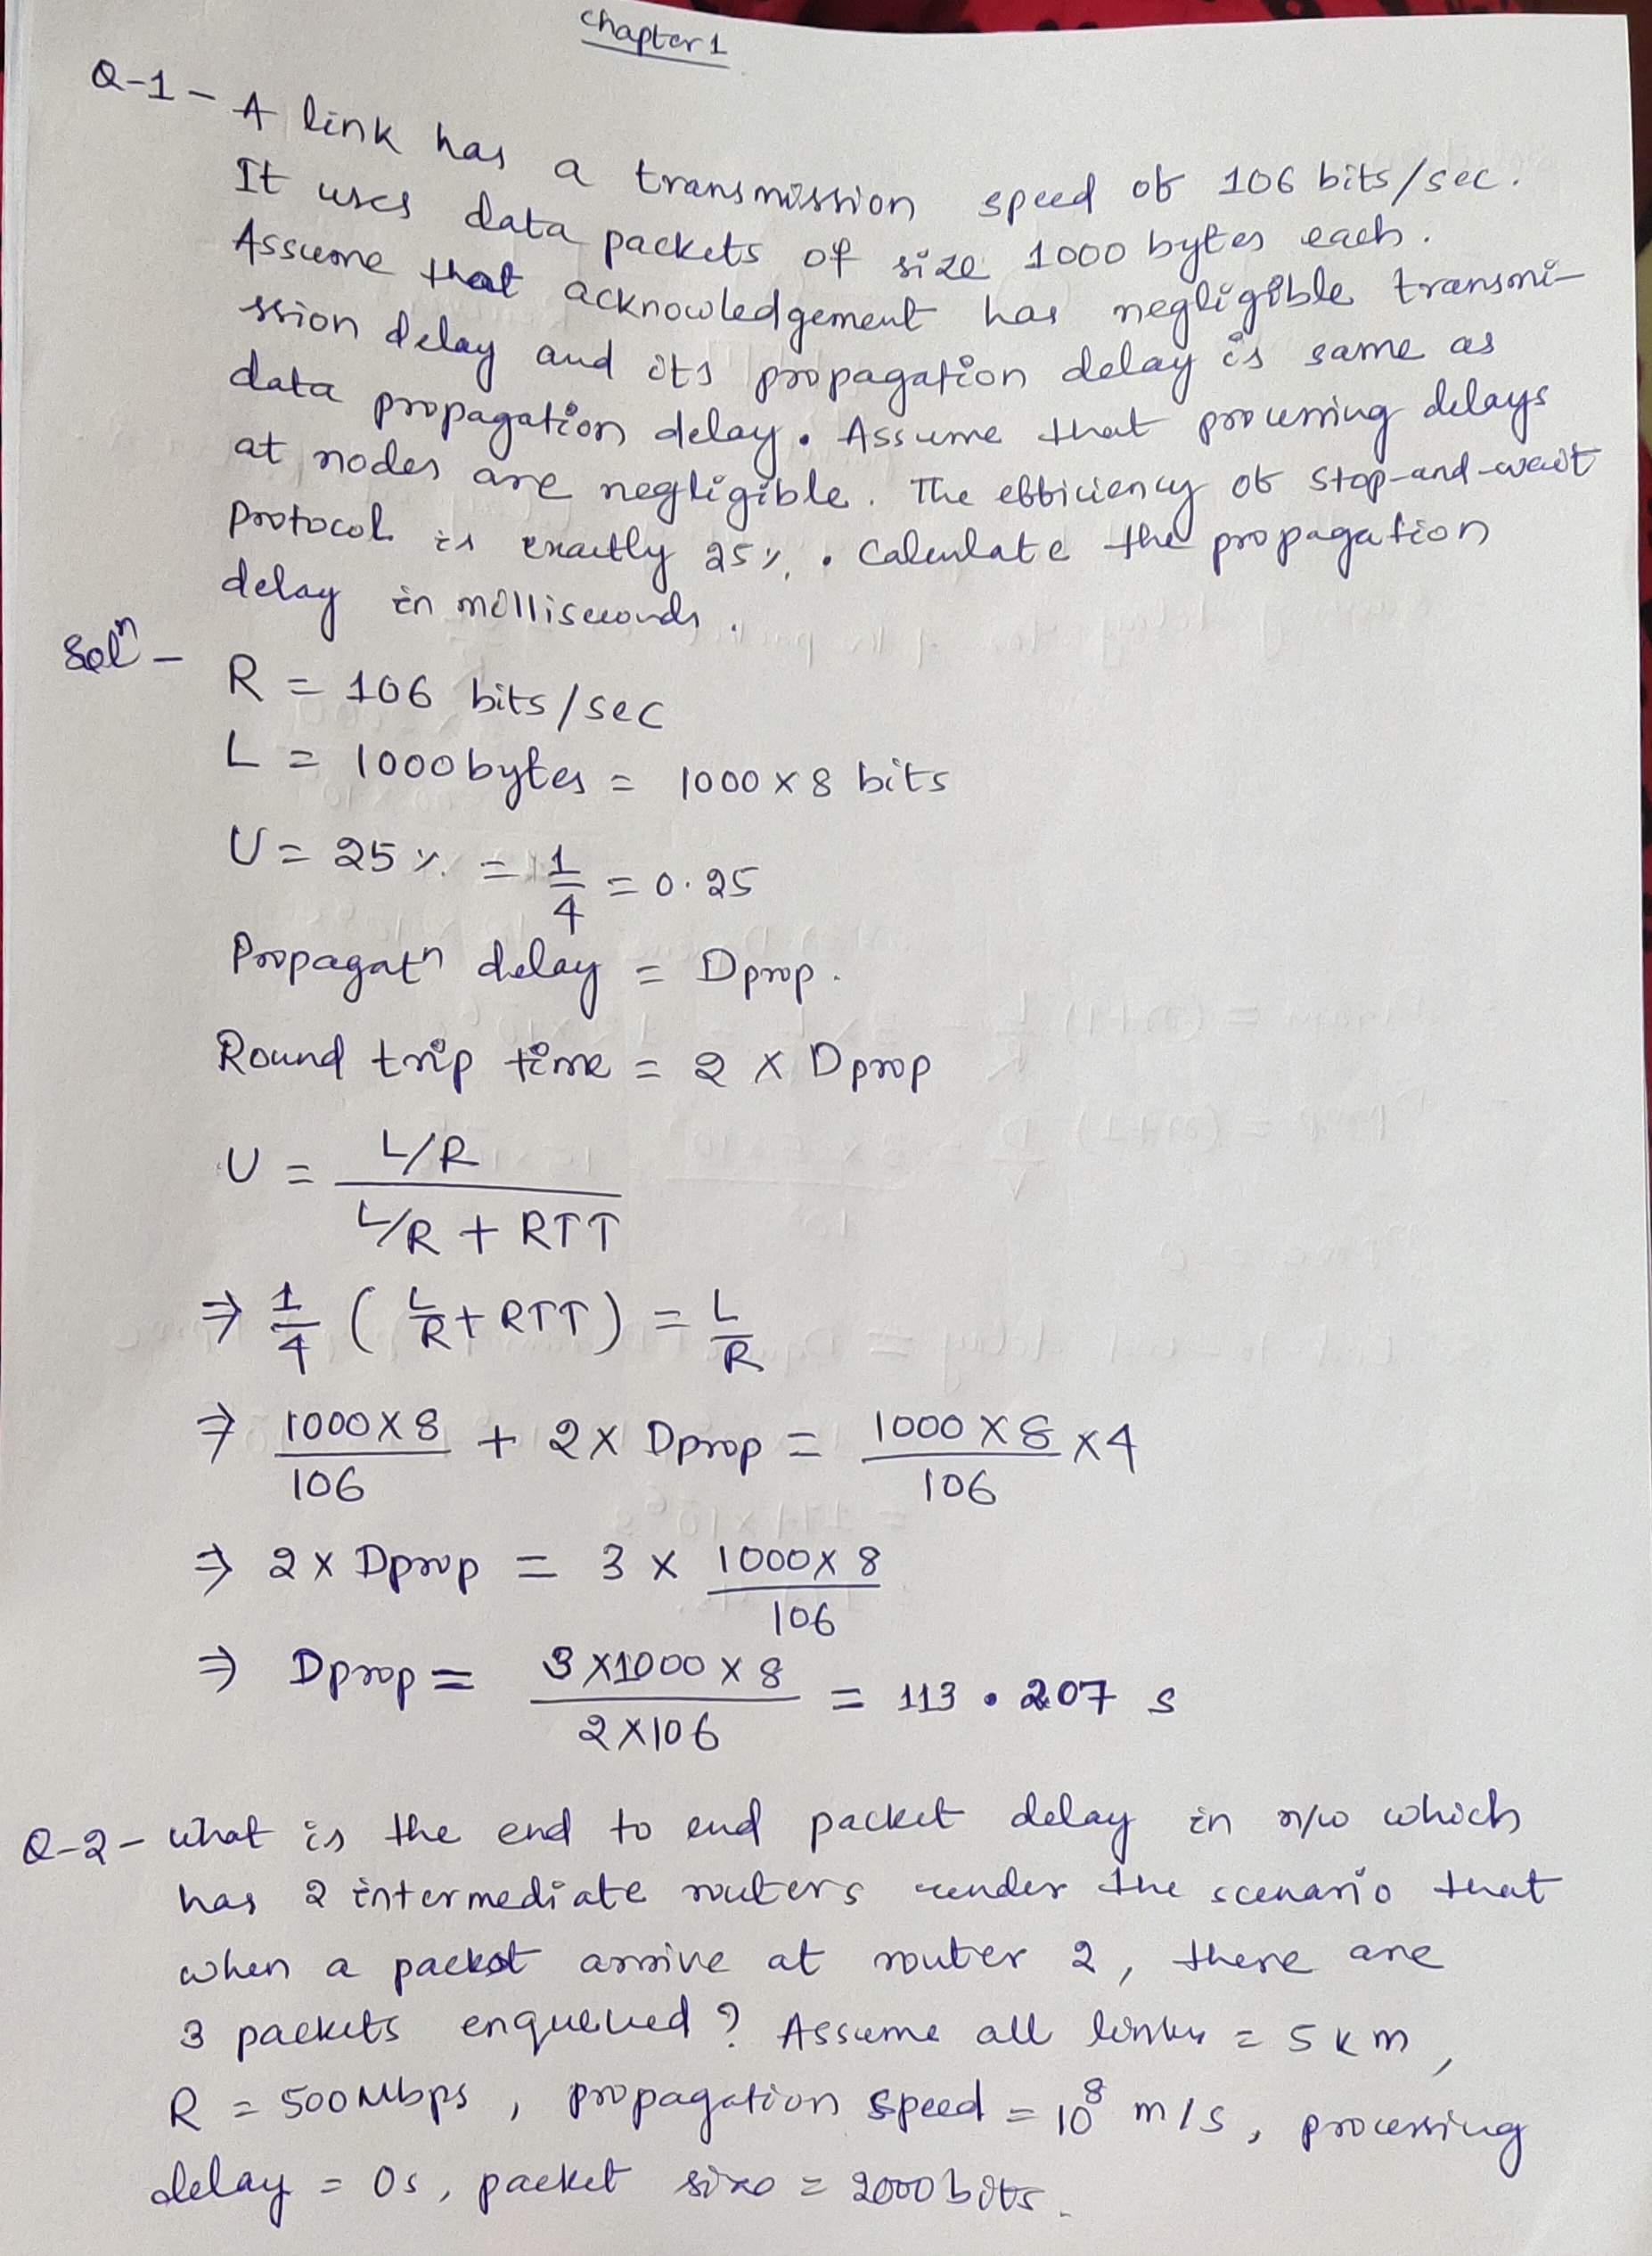 Chapter 1
Q-1- A link has a transmission speed of 106 bits/sec.
It uses data packets of size 1000 bytes each.
Assume that acknowledgement has negligible transmi-
ssion delay and its propagation delay is same as
data propagation delay. Assume that processing delays
at nodes are negligible. The efficiency of stop-and-wait
protocol is exactly 25%. Calculate the propagation
delay in milliseconds.
Solⁿ - R = 106 bits/sec
L = 1000 bytes = 1000 × 8 bits
U = 25% = 1/4 = 0.25
Propagatⁿ delay = Dprop.
Round trip time = 2 × Dprop
U = (L/R) / (L/R + RTT)
⇒ 1/4 (L/R + RTT) = L/R
⇒ (1000×8)/106 + 2× Dprop = (1000×8)/106 ×4
⇒ 2× Dprop = 3 × (1000×8)/106
⇒ Dprop = (3×1000×8)/(2×106) = 113.207 s
Q-2- What is the end to end packet delay in n/w which
has 2 intermediate routers under the scenario that
when a packet arrive at router 2, there are
3 packets enqueued? Assume all links = 5 km,
R = 500Mbps, propagation speed = 10⁸ m/s, processing
delay = 0s, packet size = 2000 bits.